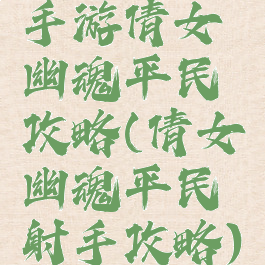 手游倩女
幽魂平民
攻略(倩女
幽魂平民
射手攻略)